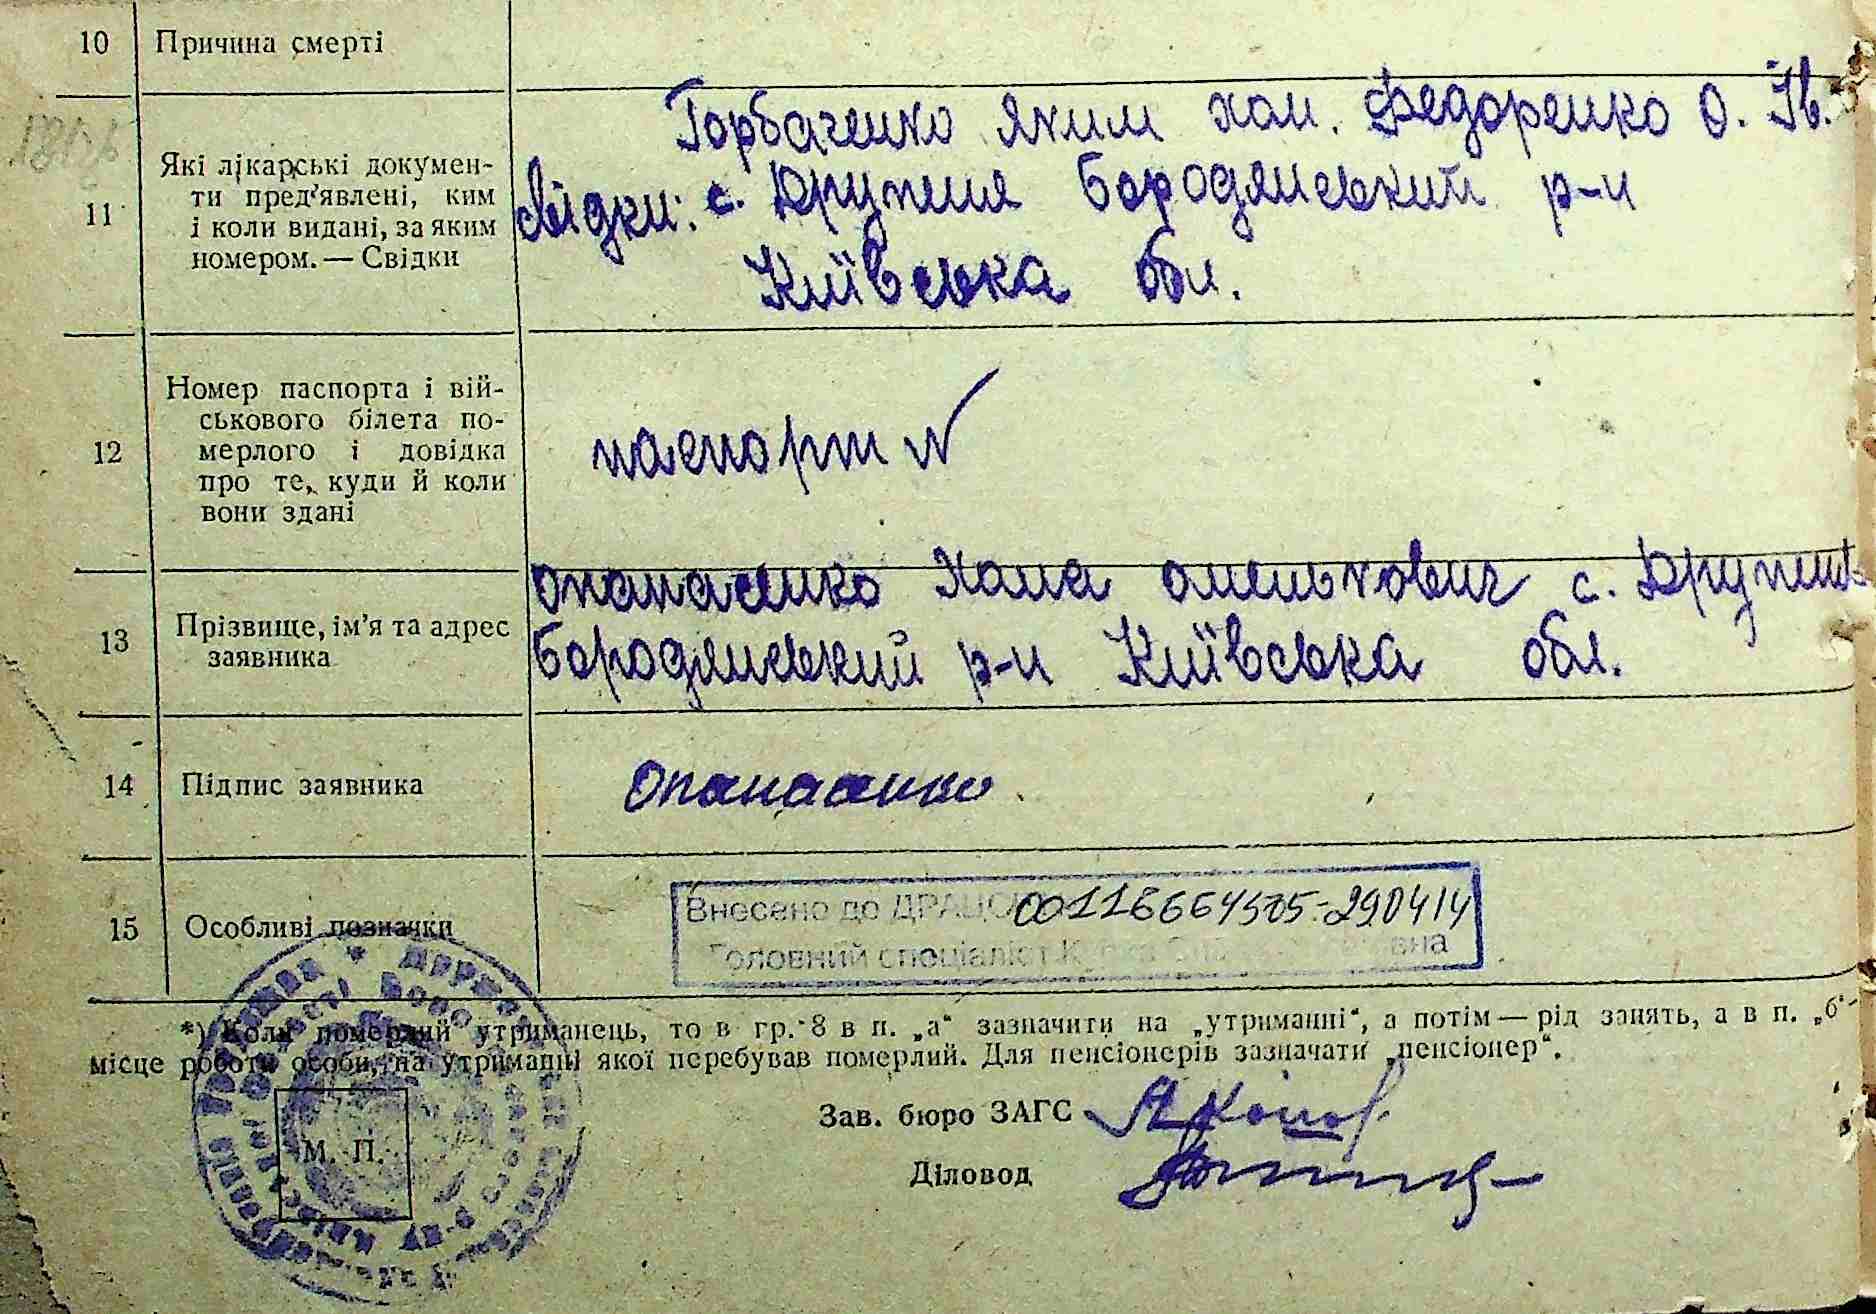 10 Причина смерті
Горбаченко Яким хом. Федоренко О. Ів.
11 Які лікарські докумен-
ти пред'явлені, ким
і коли видані, за яким
номером. — Свідки
свідки: с. Дружня Бородянський р-н
Київська обл.
12 Номер паспорта і вій-
ськового білета по-
мерлого і довідка
про те, куди й коли
вони здані
паспорт N
13 Прізвище, ім'я та адрес
заявника
Опанасенко Хома Омелькович с. Дружня
Бородянський р-н Київська обл.
14 Підпис заявника
Опанасенко
15 Особливі позначки
Внесено до 00116664505-290414
Головний спеціаліст
*) Коли померлий утриманець, то в гр. 8 в п. „а“ зазначити на „утриманні“, а потім — рід занять, а в п. „б“-
місце роботи особи, на утриманні якої перебував померлий. Для пенсіонерів зазначати „пенсіонер“.
Зав. бюро ЗАГС
М. П.
Діловод